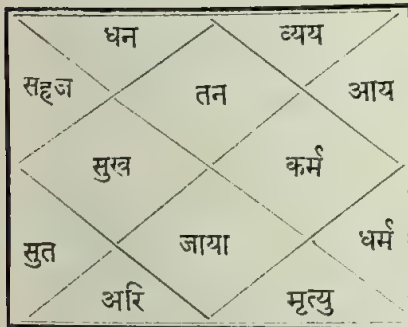 धन व्यय
सहज तन आय
सुख कर्म
सुत जाया धर्म
अरि मृत्यु